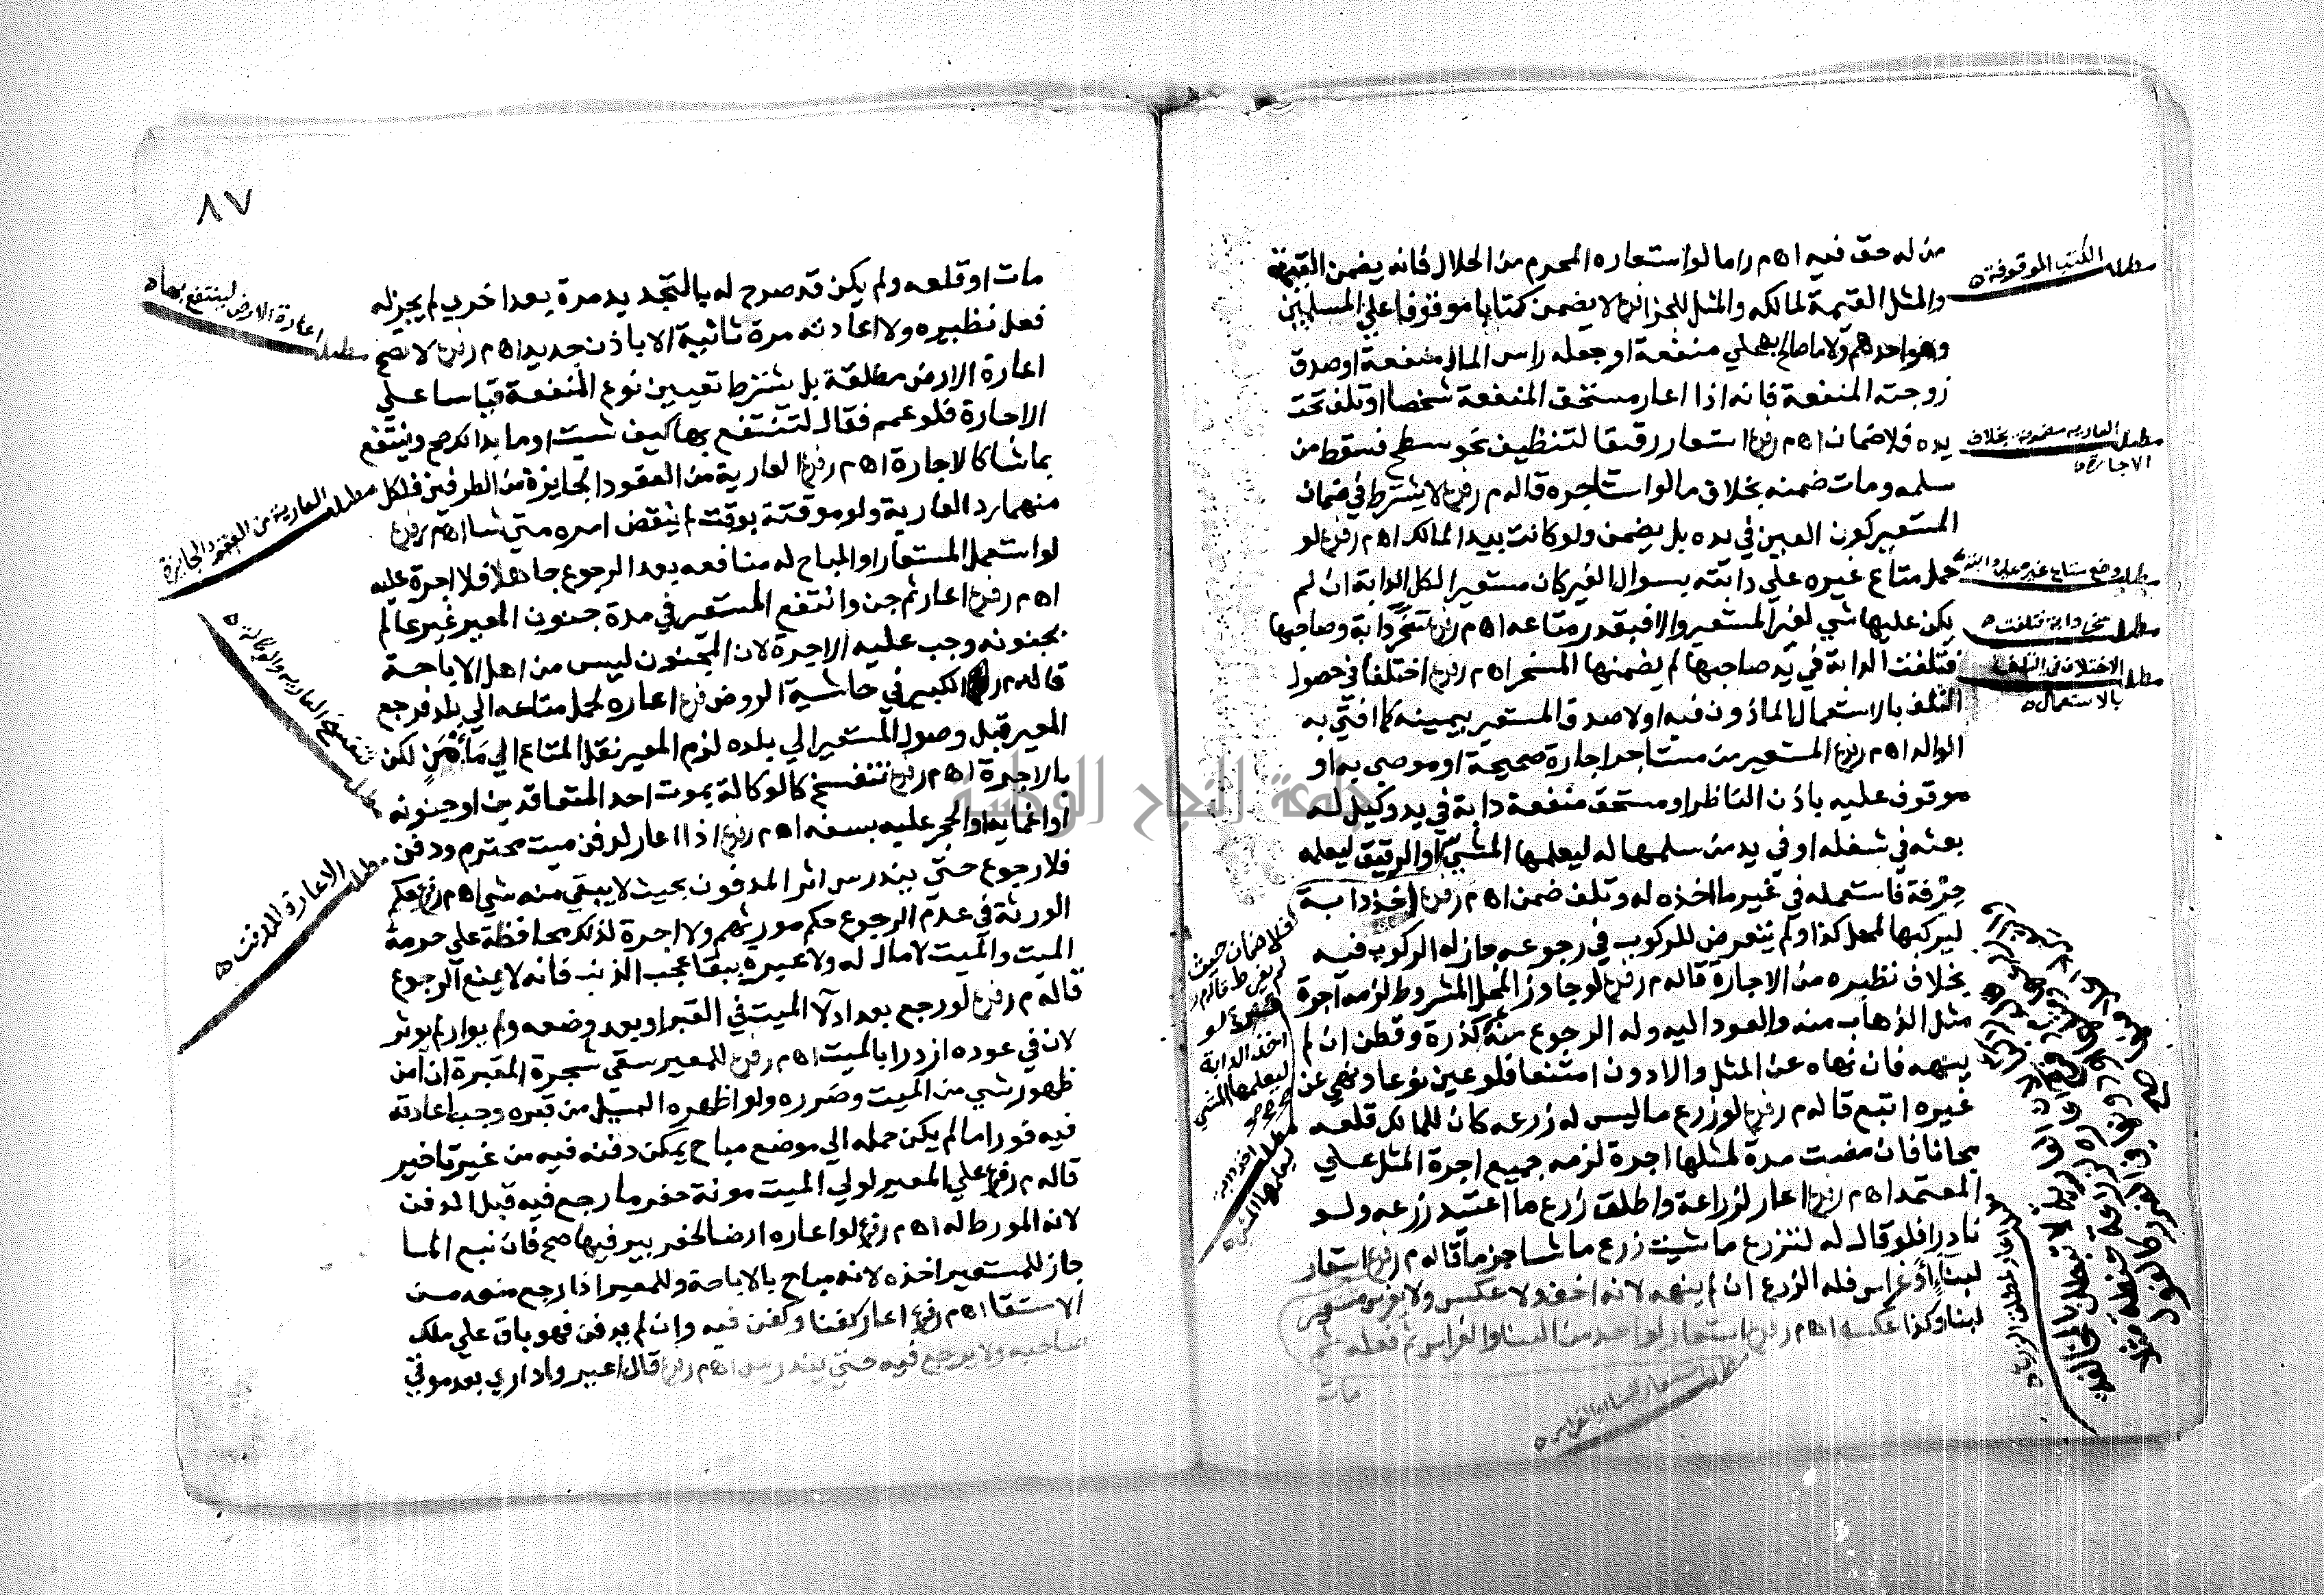 من له حق فيه اه م ر اما لو استعاره المحرم من الحلال فانه يضمن القيمة
والمثل القيمة لمالكه والمثل للجزا فرع لا يضمن كتابا موقوفا على المسلمين
وهو احدهم ولا ما صالح به على منفعة او جعله راس المال منفعة او صدق
زوجته المنفعة فانه اذا اعار مستحق المنفعة شخصا او تلف تحت
يده فلا ضمان اه م ر فرع استعار رقيقا لتنظيف نحو سطح فسقط من
سلمه ومات ضمنه بخلاف ما لو استاجره قاله م ر فرع لا يشترط في ضمان
المستعير كون العين في يده بل يضمن ولو كانت بيد المالك اه م ر فرع لو
حمل متاع غيره على دابته بسوال الغير كان مستعيرا لكل الدابة ان لم
يكن عليها شي لغير المستعير والا فبقدر متاعه اه م ر فرع سخر دابة وصاحبها
فتلفت الدابة في يد صاحبها لم يضمنها المسخر اه م ر فرع اختلفا في حصول
التلف بالاستعمال الماذون فيه او لا صدق المستعير بيمينه كما افتى به
الوالد اه م ر فرع المستعير من مستاجر اجارة صحيحة او موصى به او
موقوف عليه باذن الناظر او مستحق منفعة دابة في يد وكيل له
بعثه في شغله او في يد من سلمها له ليعلمها المشي او الرقيق ليعلمه
حرفة فاستعمله في غير ما اخذه له وتلف ضمن اه م ر فرع اخذ دابة
ليركبها لمحل كذا ولم يتعرض للركوب في رجوعه جاز له الركوب فيه
بخلاف نظيره من الاجارة قاله م ر فرع لو جاوز المحل المشروط لزمه اجرة
مثل الذهاب منه والعود اليه وله الرجوع منه كذرة وقطن ان لم
ينهه فان نهاه عن المثل والادون امتنعا فلو عين نوعا ونهى عن
غيره اتبع قاله م ر فرع لو زرع ما ليس له زرعه كان للمالك قلعه
مجانا فان مضت مدة لمثلها اجرة لزمه جميع اجرة المثل على
المعتمد اه م ر فرع اعار لزراعة واطلق زرع ما اعتيد زرعه ولو
نادرا فلو قال له لتزرع ما شيت زرع ما شا جزما قاله م ر فرع استعار
لبنا او غراس فله الزرع ان لم ينهه لانه اخف ولا عكس ولا يغرس مستعير
لبنا وكذا عكسه اه م ر فرع استعار لواحد من البنا والغراس ثم فعله ثم
مات
مطلب الكتب الموقوفة
مطلب العارية مضمونة بخلاف
الاجارة
مطلب وضع متاع غيره على دابته
مطلب سخر دابة فتلفت
مطلب الاختلاف في التلف
بالاستعمال
فلا ضمان حيث
لم يفرط قاله م ر
لو
اخذ الدابة
ليعلمها المشي
مطلب اخذ دابة
ليعلمها المشي
مطلب استعار لبنا او الغراس
٨٧
مات او قلعه ولم يكن قد صرح له بالتجديد مرة بعد اخرى لم يجز له
فعل نظيره ولا اعادته مرة ثانية الا باذن جديد اه م ر فرع لا تصح
اعارة الارض مطلقة بل يشترط تعيين نوع المنفعة قياسا على
الاجارة فلو عمم فقال لتنتفع بها كيف شيت او ما بدا لك صح وينتفع
بما شا كالاجارة اه م ر فرع العارية من العقود الجايزة من الطرفين فلكل
منهما رد العارية ولو موقتة بوقت لم ينقض امره متى شا اه م ر فرع
لو استعمل المستعار او المباح له منافعه بعد الرجوع جاهلا فلا اجرة عليه
اه م ر فرع اعار ثم جن وانتفع المستعير في مدة جنون المعير غير عالم
بجنونه وجب عليه الاجرة لان المجنون ليس من اهل الاباحة
قاله م ر الكبير في حاشية الروض فرع اعاره لحمل متاعه الى بلد فرجع
المعير قبل وصول المستعير الى بلده لزم المعير نقل المتاع الى مامن لكن
بالاجرة اه م ر فرع تنفسخ كالوكالة بموت احد المتعاقدين او جنونه
او اغمايه او الحجر عليه بسفه اه م ر فرع اذا اعار لدفن ميت محترم ودفن
فلا رجوع حتى يندرس اثر المدفون بحيث لا يبقى منه شي اه م ر فرع حكم
الورثة في عدم الرجوع حكم مورثهم ولا اجرة لذلك محافظة على حرمة
الميت والميت لا مال له ولا عبرة ببقا عجب الذنب فانه لا يمنع الرجوع
قاله م ر فرع لو رجع بعد ادلا الميت في القبر او بعد وضعه ولم يوار لم يوثر
لان في عوده ازدرا بالميت اه م ر فرع للمعير سقي شجرة المقبرة ان امن
ظهور شي من الميت وضرره ولو اظهره السيل من قبره وجب اعادته
فيه فورا ما لم يكن حمله الى موضع مباح يمكن دفنه فيه من غير تاخير
قاله م ر فرع على المعير لولي الميت مونة حفر ما رجع فيه قبل الدفن
لانه المورط له اه م ر فرع لو اعاره ارضا لحفر بير فيها صح فان نبع الما
جاز للمستعير اخذه لانه مباح بالاباحة وللمعير اذا رجع منعه من
الاستقا اه م ر فرع اعار كفنا وكفن فيه وان لم يدفن فهو باق على ملك
صاحبه ولا يرجع فيه حتى يندرس اه م ر فرع قال اعيروا داري بعد موتي
مطلب اعارة الارض لينتفع بها
مطلب العارية من العقود الجايزة
مطلب تنفسخ العارية والوكالة
مطلب الاعارة للدفن